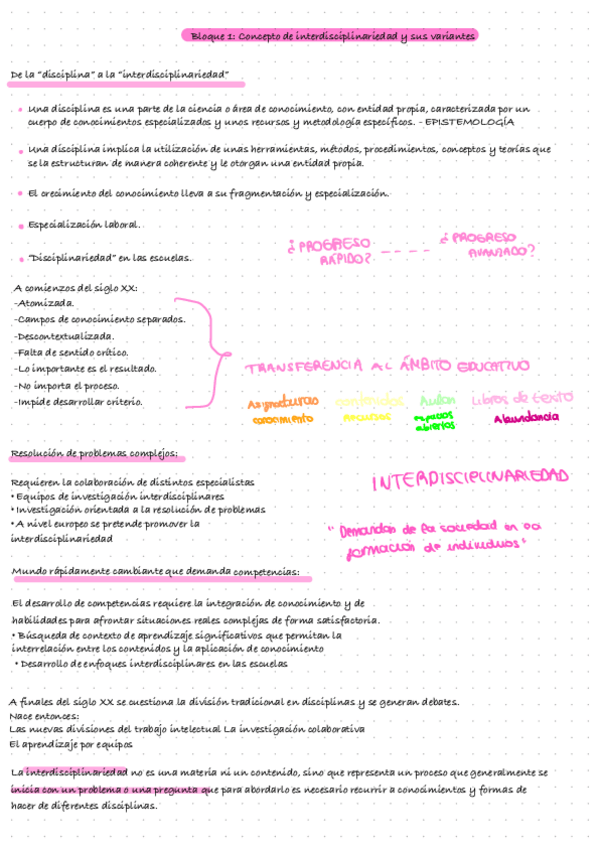 Bloque 1: Concepto de interdisciplinariedad y sus variantes
De la "disciplina" a la "interdisciplinariedad"
• Una disciplina es una parte de la ciencia o área de conocimiento, con entidad propia, caracterizada por un
cuerpo de conocimientos especializados y unos recursos y metodología específicos. - EPISTEMOLOGÍA
• Una disciplina implica la utilización de unas herramientas, métodos, procedimientos, conceptos y teorías que
se la estructuran de manera coherente y le otorgan una entidad propia.
• El crecimiento del conocimiento lleva a su fragmentación y especialización.
• Especialización laboral.
• "Disciplinariedad" en las escuelas.
¿PROGRESO RÁPIDO? ---- ¿PROGRESO AVANZADO?
A comienzos del siglo XX:
-Atomizada.
-Campos de conocimiento separados.
-Descontextualizada.
-Falta de sentido crítico.
-Lo importante es el resultado.
-No importa el proceso.
-Impide desarrollar criterio.
TRANSFERENCIA AL ÁMBITO EDUCATIVO
Asignaturas contenidos Aulas Libros de texto
conocimiento espacios abiertos Abundancia
Resolución de problemas complejos:
Requieren la colaboración de distintos especialistas
• Equipos de investigación interdisciplinares
• Investigación orientada a la resolución de problemas
• A nivel europeo se pretende promover la
interdisciplinariedad
INTERDISCIPLINARIEDAD
"Demandas de la sociedad en la
formación de individuos"
Mundo rápidamente cambiante que demanda competencias:
El desarrollo de competencias requiere la integración de conocimiento y de
habilidades para afrontar situaciones reales complejas de forma satisfactoria.
• Búsqueda de contexto de aprendizaje significativos que permitan la
interrelación entre los contenidos y la aplicación de conocimiento
• Desarrollo de enfoques interdisciplinares en las escuelas
A finales del siglo XX se cuestiona la división tradicional en disciplinas y se generan debates.
Nace entonces:
Las nuevas divisiones del trabajo intelectual La investigación colaborativa
El aprendizaje por equipos
La interdisciplinariedad no es una materia ni un contenido, sino que representa un proceso que generalmente se
inicia con un problema o una pregunta que para abordarlo es necesario recurrir a conocimientos y formas de
hacer de diferentes disciplinas.